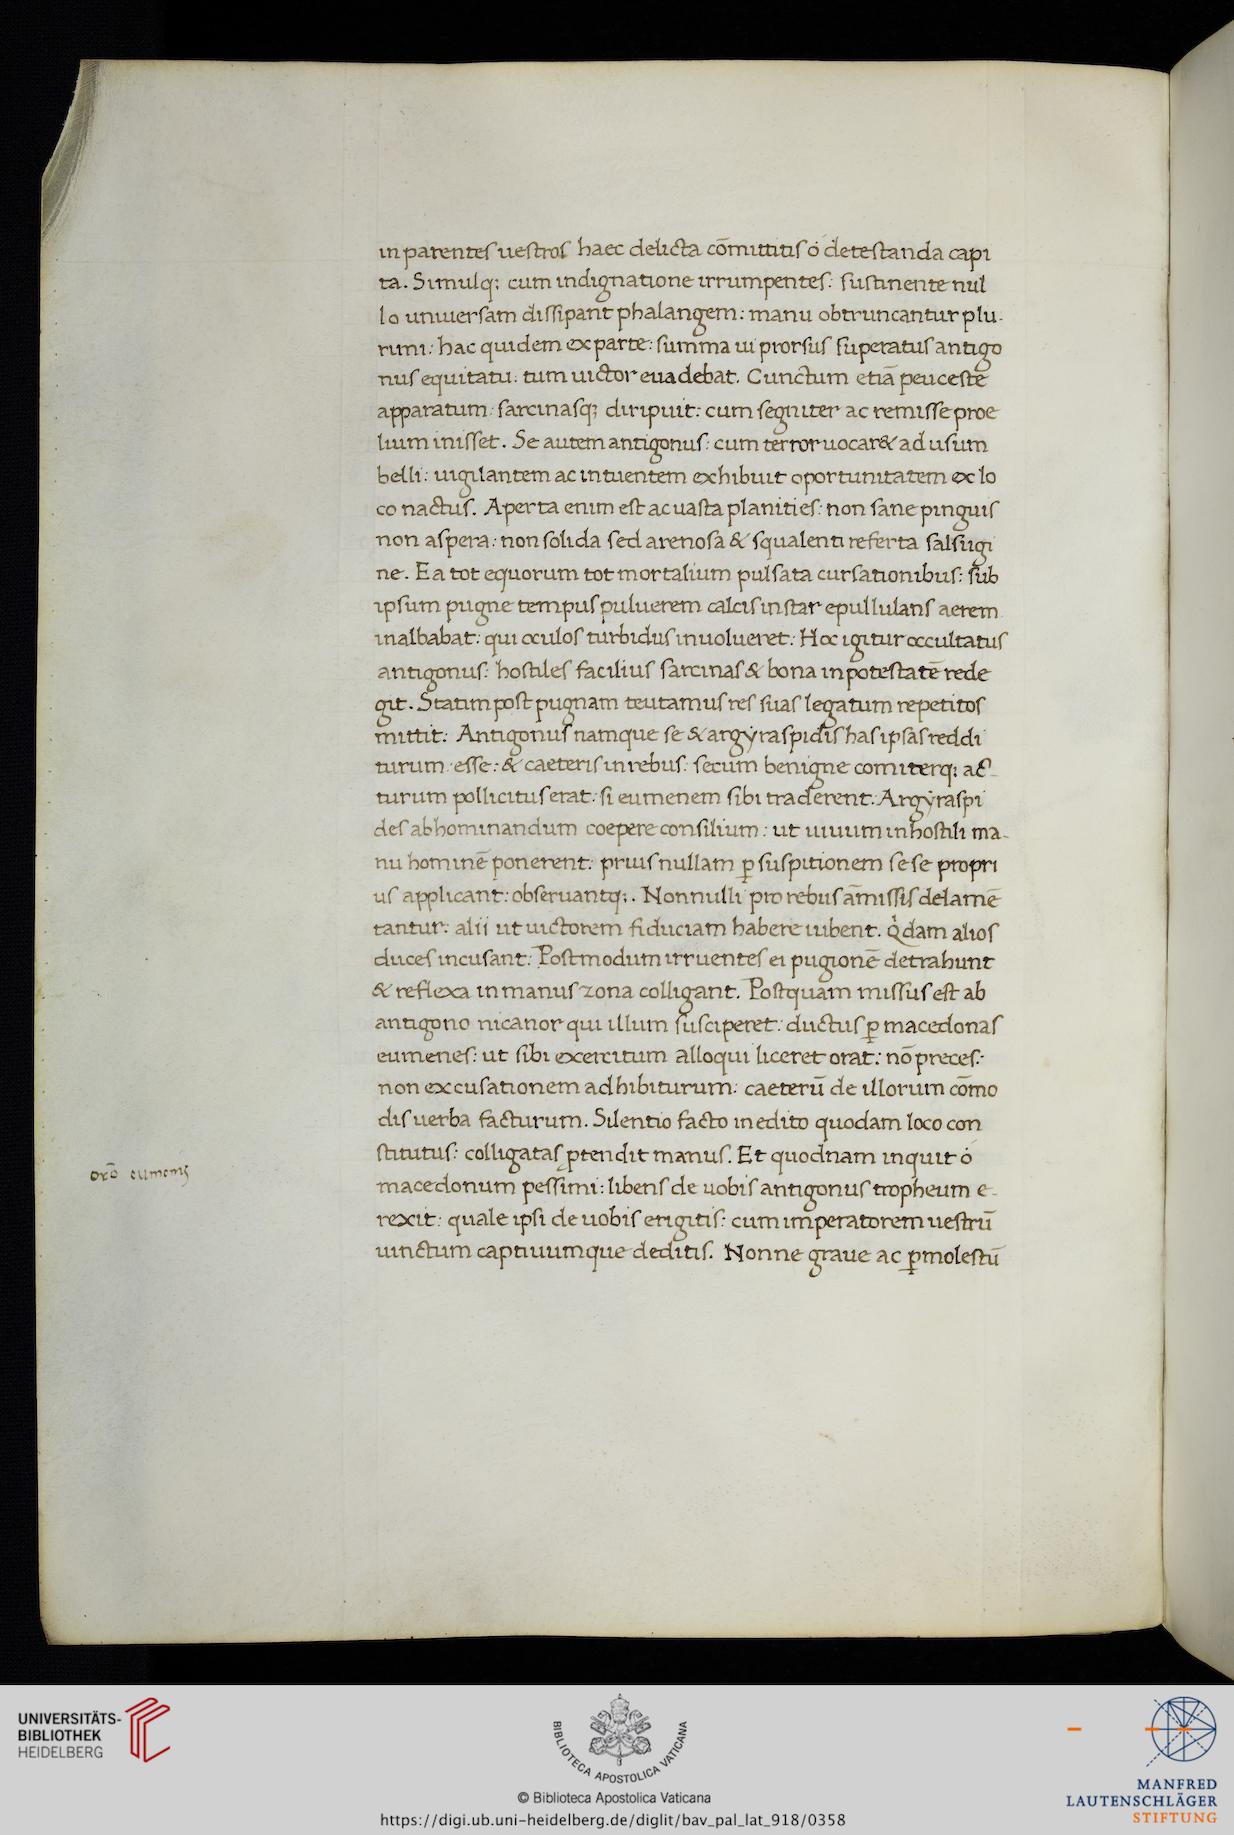 in parentes uestros haec delicta cōmittitis ó detestanda capi
ta. Simulq; cum indignatione irrumpentes: sustinente nul
lo uniuersam dissipant phalangem: manu obtruncantur plu-
rimi: hac quidem ex parte: summa ui prorsus superatus antigo
nus equitatu: tum uictor euadebat. Cunctum etiā peucestē
apparatum: sarcinasq; diripuit: cum segniter ac remisse proe
lium inisset. Se autem antigonus: cum terror uocar& ad usum
belli: uigilantem ac intuentem exhibuit oportunitatem ex lo
co nactus. Aperta enim est ac uasta planities: non sane pinguis
non aspera: non solida sed arenosa & squalenti referta salsugi
ne. Ea tot equorum tot mortalium pulsata cursationibus: sub
ipsum pugne tempus puluerem calcis instar epullulans aerem
inalbabat: qui oculos turbidus inuolueret: Hoc igitur occultatus
antigonus: hostiles facilius sarcinas & bona in potestatē rede
git. Statim post pugnam teutamus res suas legatum repetitos
mittit: Antigonus namque se & argyraspidis has ipsas reddi
turum esse: & caeteris in rebus: secum benigne comiterq; ac-
turum pollicitus erat: si eumenem sibi traderent: Argyraspi
des abhominandum coepere consilium: ut uiuum in hostili ma-
nu hominē ponerent: prius nullam ꝑ suspitionem sese propri
us applicant: obseruantq;. Nonnulli pro rebus amissis delamē
tantur: alii ut uictorem fiduciam habere iubent. Qdam alios
duces incusant: Postmodum irruentes ei pugionē detrahunt
& reflexa in manus zona colligant. Postquam missus est ab
antigono nicanor qui illum susciperet: ductus ꝑ macedonas
eumenes: ut sibi exercitum alloqui liceret orat: nō preces:
non excusationem adhibiturum: caeterū de illorum cōmo
dis uerba facturum. Silentio facto in edito quodam loco con
stitutus: colligatas ꝓtendit manus. Et quodnam inquit ó
macedonum pessimi: libens de uobis antigonus tropheum e-
rexit: quale ipsi de uobis erigitis: cum imperatorem uestrū
uinctum captiuumque deditis. Nonne graue ac ꝑmolestū
orō eumenis
UNIVERSITÄTS-
BIBLIOTHEK
HEIDELBERG
BIBLIOTECA APOSTOLICA VATICANA
© Biblioteca Apostolica Vaticana
https://digi.ub.uni-heidelberg.de/diglit/bav_pal_lat_918/0358
MANFRED
LAUTENSCHLÄGER
STIFTUNG